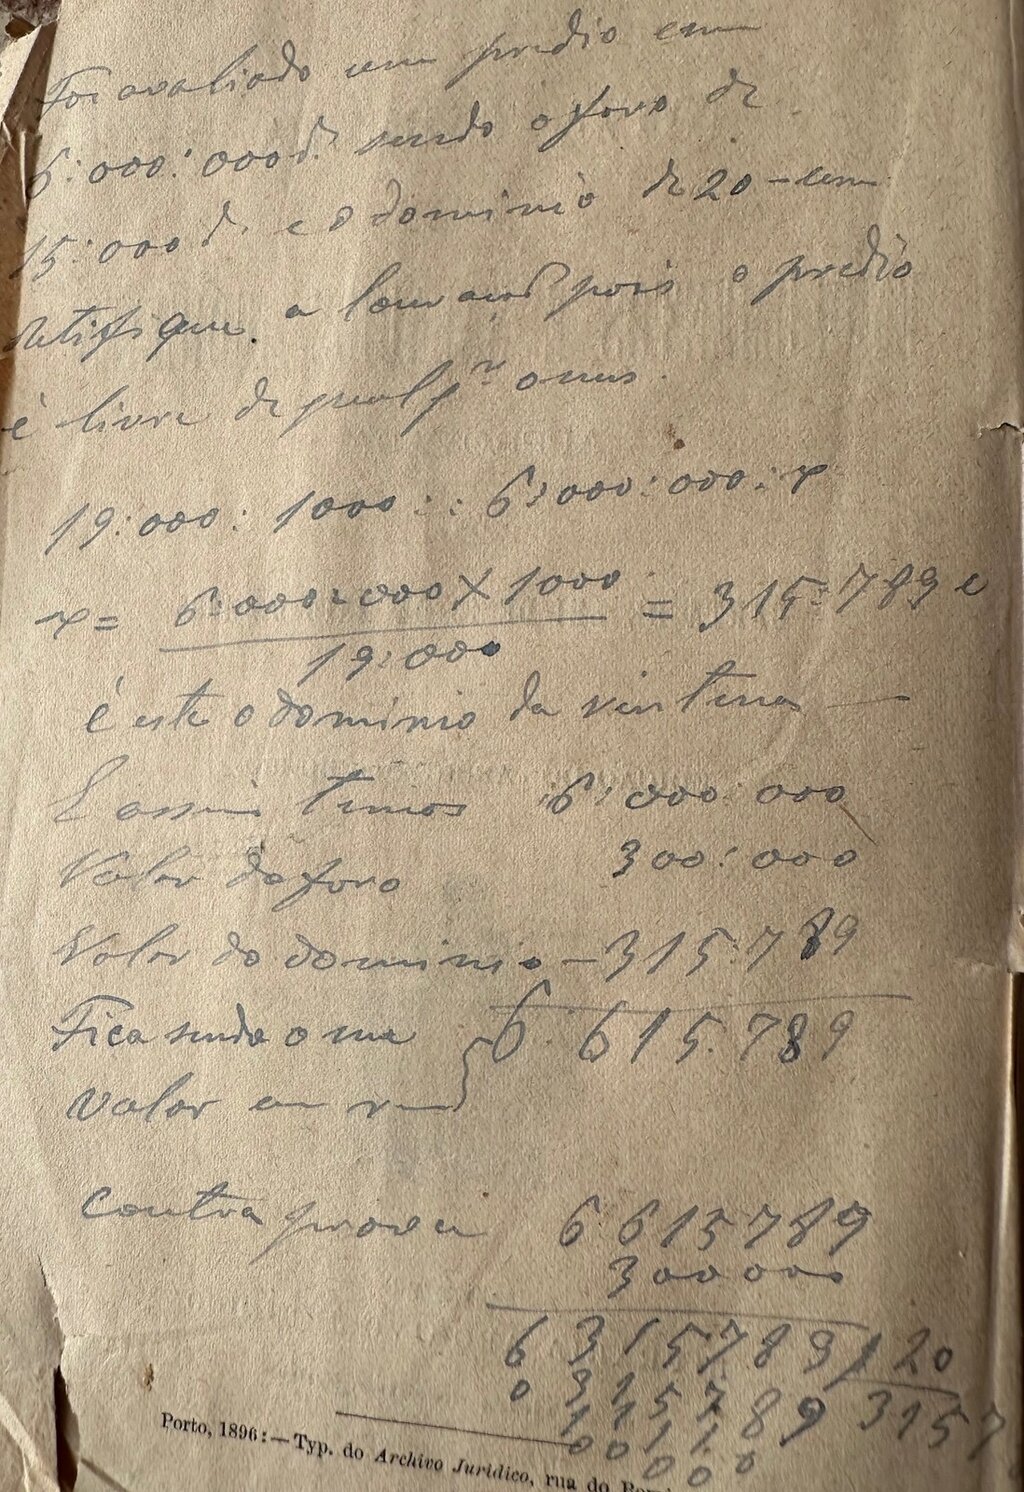 Foi avaliado um predio em
6:000:000 rs. sendo o foro de
15:000 rs. e o dominio de 20 - um
retifique a louvação pois o predio
é livre de qualqr onus.
19:000: 1000:: 6:000:000: x
x = 6:000:000 X 1000 / 19:000 = 315:789 e
é este o dominio da vintena —
E assim temos 6:000:000
Valor do foro 300:000
Valor do dominio - 315:789
Fica sendo o seu } 6.615.789
valor em
Contra prova 6615789
300000
6315789 | 20
0315789 3157
Porto, 1896:—Typ. do Archivo Juridico, rua do